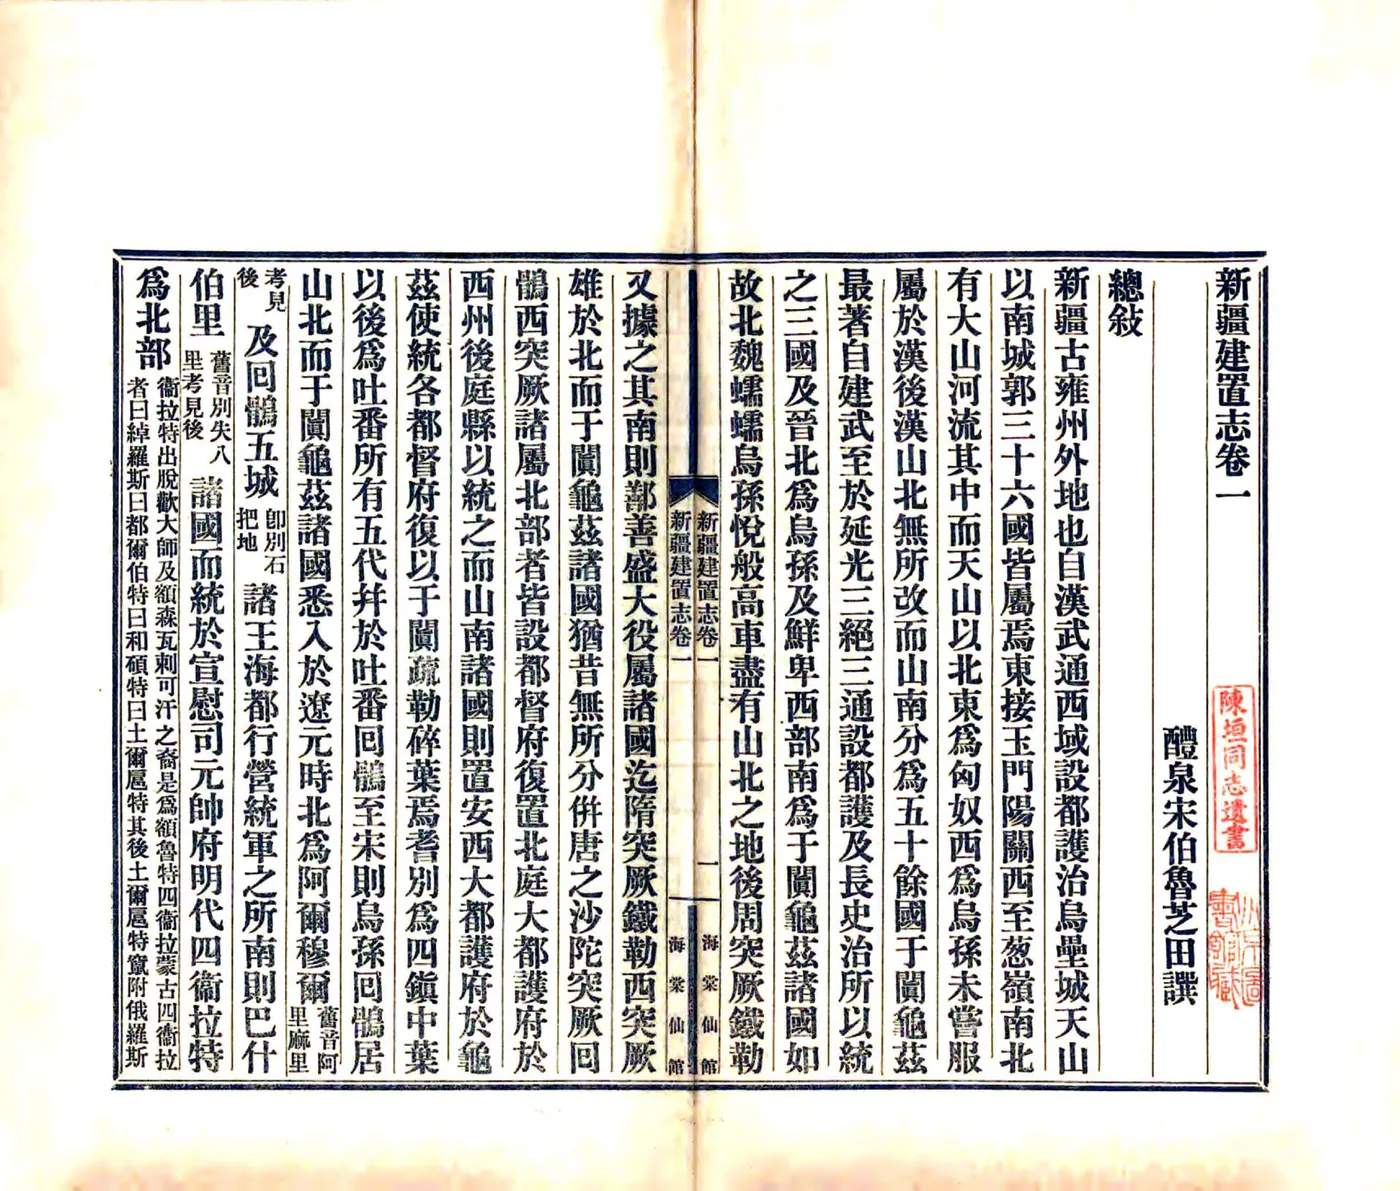 新疆建置志卷一
陳垣同志遺書
醴泉宋伯魯芝田譔
總敍
新疆古雍州外地也自漢武通西域設都護治烏壘城天山
以南城郭三十六國皆屬焉東接玉門陽關西至葱嶺南北
有大山河流其中而天山以北東爲匈奴西爲烏孫未嘗服
屬於漢後漢山北無所改而山南分爲五十餘國于闐龜茲
最著自建武至於延光三絕三通設都護及長史治所以統
之三國及晉北爲烏孫及鮮卑西部南爲于闐龜茲諸國如
故北魏蠕蠕烏孫悅般高車盡有山北之地後周突厥鐵勒
新疆建置志卷一
一
海棠仙館
新疆建置志卷一
海棠仙館
又據之其南則鄯善盛大役屬諸國迄隋突厥鐵勒西突厥
雄於北而于闐龜茲諸國猶昔無所分倂唐之沙陀突厥回
鶻西突厥諸屬北部者皆設都督府復置北庭大都護府於
西州後庭縣以統之而山南諸國則置安西大都護府於龜
茲使統各都督府復以于闐疏勒碎葉焉耆別爲四鎭中葉
以後爲吐番所有五代幷於吐番回鶻至宋則烏孫回鶻居
山北而于闐龜茲諸國悉入於遼元時北爲阿爾穆爾舊音阿里麻里
考見後及回鶻五城卽別石把地諸王海都行營統軍之所南則巴什
伯里舊音別失八里考見後諸國而統於宣慰司元帥府明代四衞拉特
爲北部衞拉特出脫歡大師及額森瓦剌可汗之裔是爲額魯特四衞拉蒙古四衞拉
者曰綽羅斯曰都爾伯特曰和碩特曰土爾扈特其後土爾扈特竄附俄羅斯